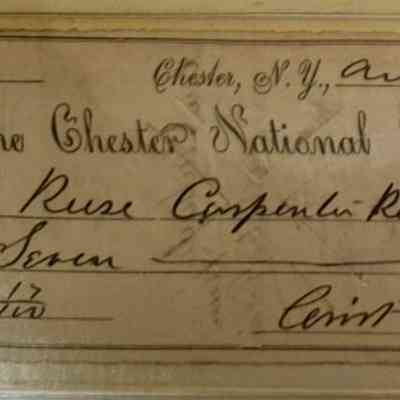 Chester, N.Y.,
Chester National
Reese Carpenter
Seven
17/100